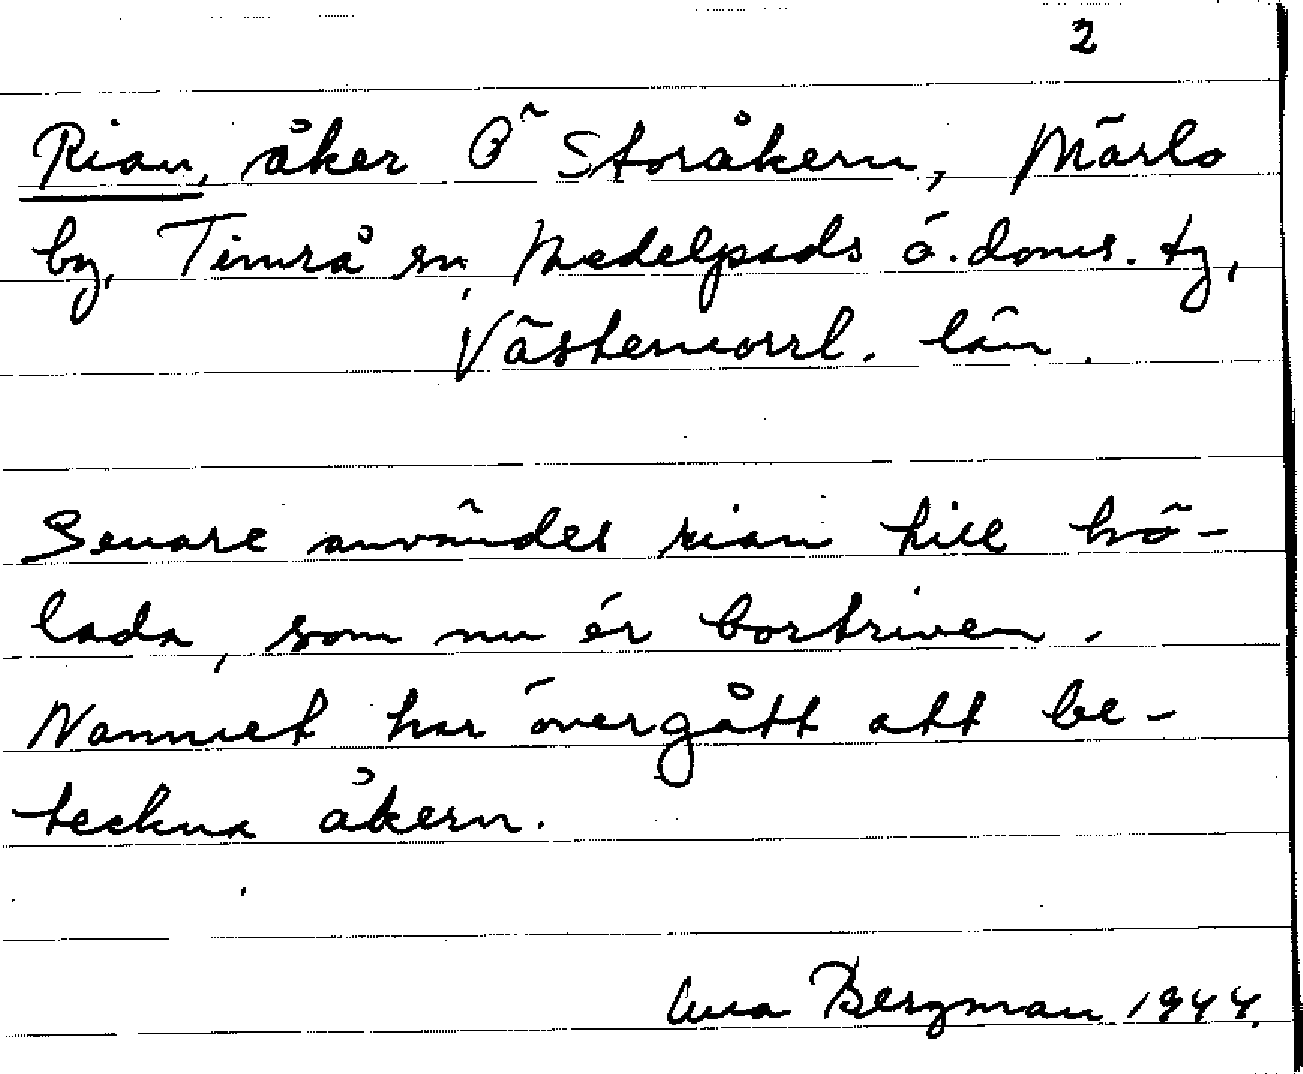 2
Rian, åker Ö Storåkern, Märlo
by, Timrå sn, Medelpads ö. doms. tg,
Västernorrl. län.
Senare användes rian till hö-
lada, som nu är bortriven.
Namnet har övergått att be-
teckna åkern.
Bergman 1944.